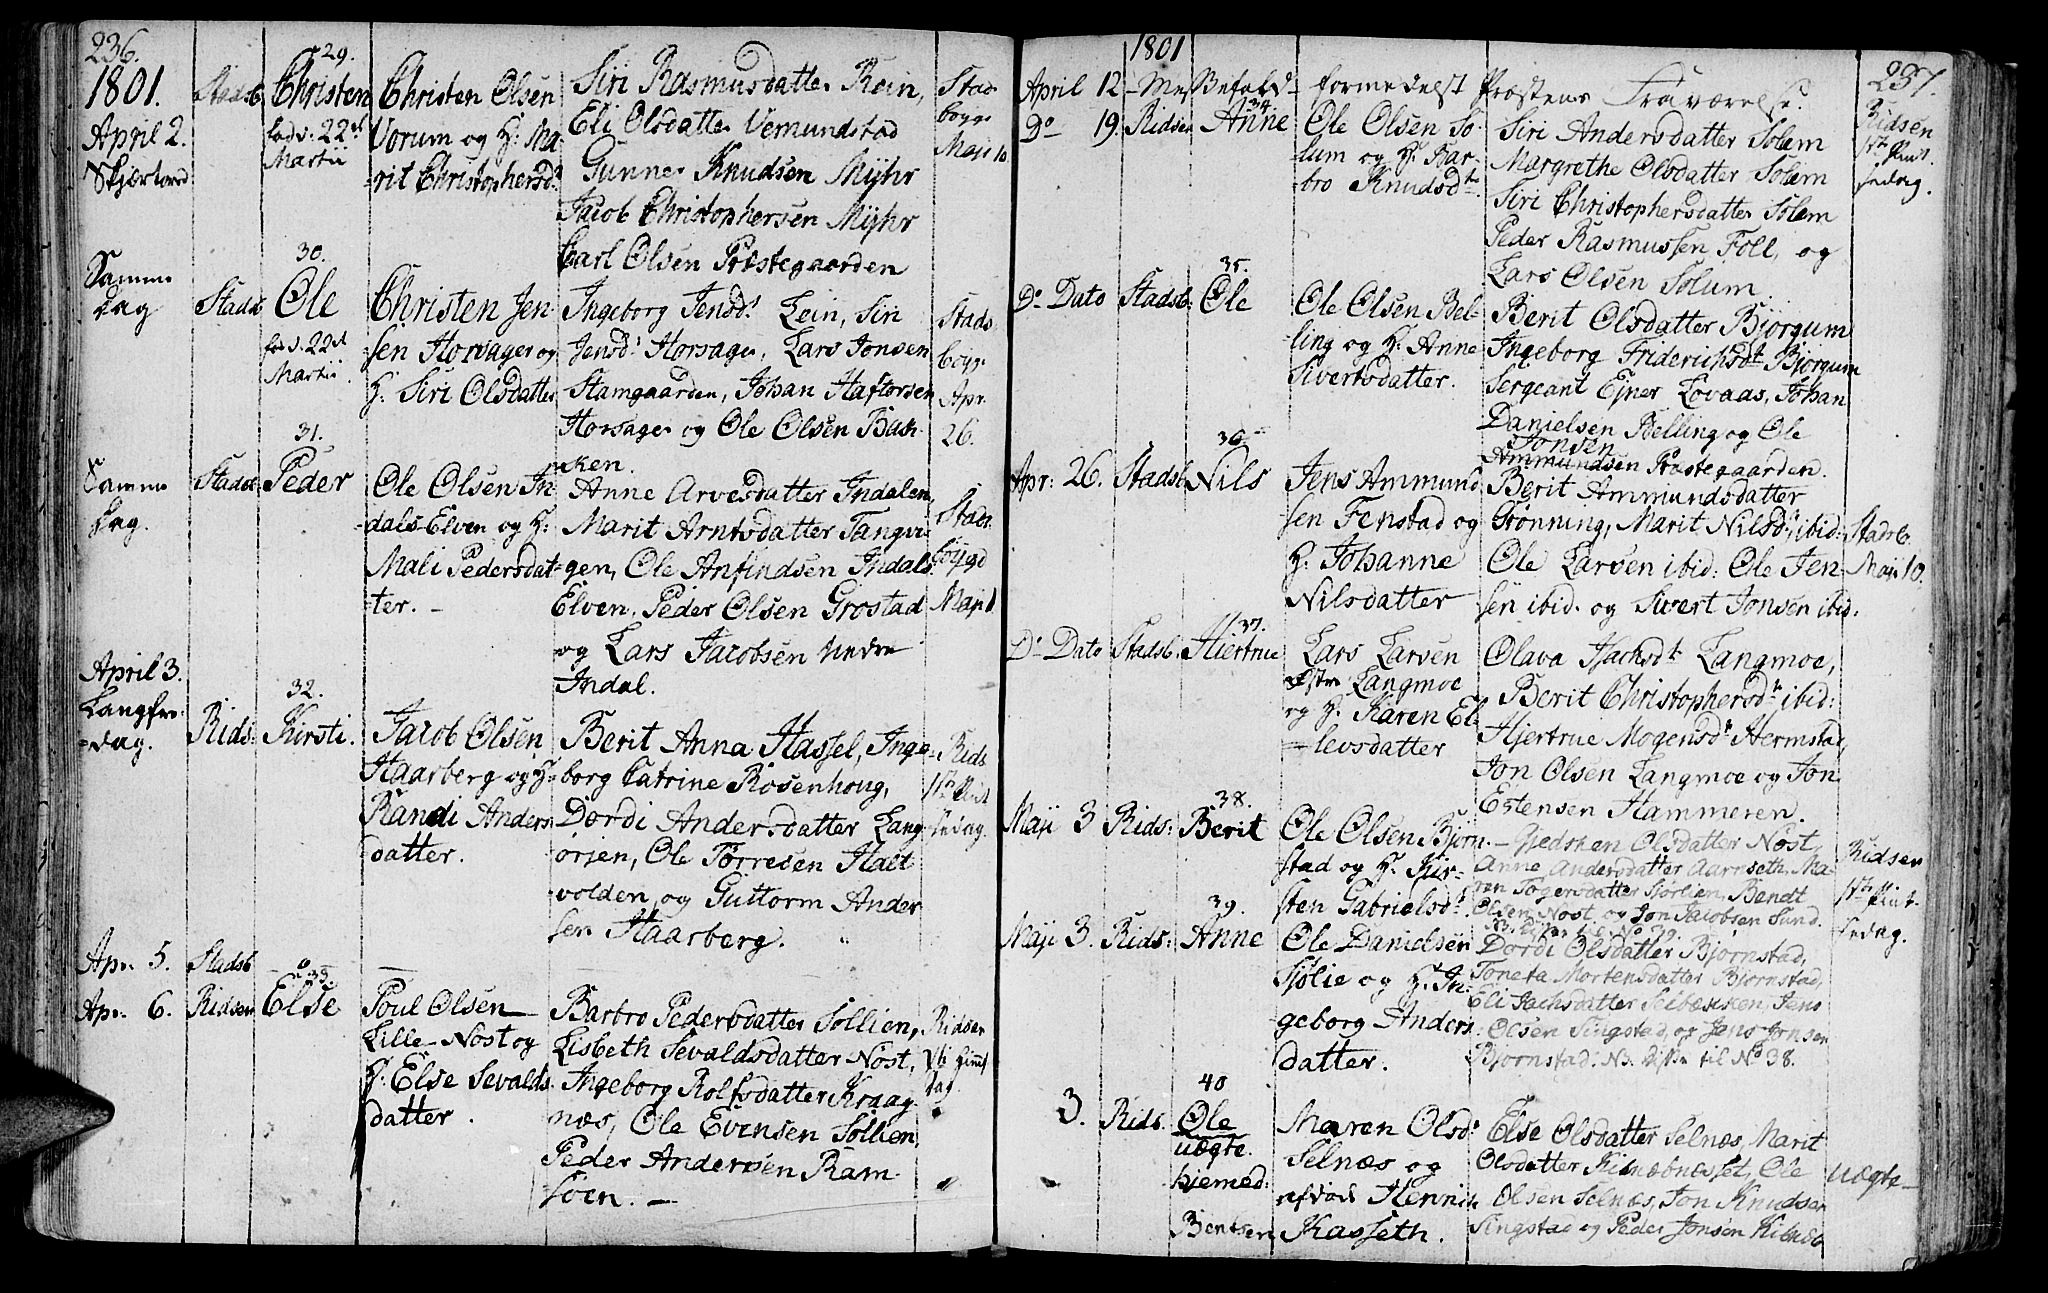 236.
1801.
April 2.
Skjærtorsd
Stadsb
29.
Christen
fød d. 22de
Martii
Christen Olsen
Vorum og H: Ma-
rit Christophersd.
Siri Rasmusdatter Rein,
Eli Olsdatter Vemundstad
Gunner Knudsen Myhr
Jacob Christophersen Myhr
Carl Olsen Præstegaarden
Stads
boyg
Maji 10.
Samme
Dag
Stads
30.
Ole
fød d. 22de
Martii
Christen Jen-
sen Horsager og
H. Siri Olsdatter
Ingeborg Jensd. Lein, Siri
Jensd. Horsager, Lars Jonsen
Stamgaarden, Johan Haftorsen
Horsager og Ole Olsen Bak-
ken.
Stads
boyg
Apr.
26.
Samme
Dag.
Stadsb
31.
Peder
Ole Olsen In-
dals Elven og H:
Mali Pedersdat-
ter. -
Anne Arvesdatter Indalen,
Marit Arntsdatter Tangvi-
gen, Ole Anfindsen Indals
Elven, Peder Olsen Grostad
og Lars Jacobsen nedre
Indal.
Stads
boygd
Maji
April 3.
Langfre-
dag.
Rids:
32.
Kirsti.
Jacob Olsen
Haarberg og H:
Randi Anders
datter.
Berit Anna Hassel, Inge-
borg Catrine Rosenhoug,
Dordi Andersdatter Lang-
orjen, Ole Torresen Halt
volden, og Guttorm Ander
sen Haarberg.
Rids
1ste Pint
sedag.
Apr. 5. Stadsb - 0 -
Apr. 6. Ridsen
33.
Else
Poul Olsen
Lille-Nost og
H. Else Sevalds
datter.
Barbro Pedersdatter Sollien,
Lisbeth Sevaldsdatter Nost,
Ingeborg Rolfsdatter Kraag-
næs, Ole Evensen Sollien,
Peder Andersen Ram-
soen. -
Ridsen
Dag
1801
237.
April 12 - Mes Befald - formedelst Præstens Fraværelse.
Do 19. Ridsen
34.
Anne
Ole Olsen So-
lum og H. Bar-
bro Knudsdtr.
Siri Andersdatter Solem
Margrethe Olsdatter Solem
Siri Christophersdatter Solem
Peder Rasmussen Foll, og
Lars Olsen Solum
Ridsen
1ste Pint.
sedag.
Do Dato Stadsb:
35.
Ole
Ole Olsen Bel-
ling og H. Anne
Sivertsdatter.
Berit Olsdatter Bjorgum
Ingeborg Friderichsdtr Bjorgum
Sergeant Ejner Lovaas, Johan
Danielsen Belling og Ole
Jonsen
Ammundsen Præstegaarden.
Apr: 26. Stadsb.
36
Nils
Jens Ammund
sen Fenstad og
H. Johanne
Nilsdatter
Berit Ammundsdatter
Gronning, Marit Nilsd. ibid:
Ole Larsen ibid: Ole Jen-
sen ibid. og Sivert Jonsen ibid:
Stadsb.
Maji 10.
Do Dato Stadsb.
37.
Hjertrue
Lars Larsen
Langmoe
og H. Karen El-
levsdatter
Olava Jachsdtr Langmoe,
Berit Christophersdtr ibid:
Hjertrue Mogensdtr Hermstad,
Jon Olsen Langmoe og Jon
Estensen Hammeren.
Maji 3 Rids:
38.
Berit
Ole Olsen Bjorn-
stad og H. Kir-
sten Gabrielsdtr.
Gjedsken Olsdatter Nost,
Anne Andersdatter Aarnseth, Ma-
ren Togersdatter Sjorlien, Bendt
Olsen Nost og Jon Jacobsen Sund.
No. 39.
Ridsen
1ste Pint-
sedag.
Maji 3. Rids:
39.
Anne
Ole Danielsen
Sjolie og H. In-
geborg Anders
datter.
Dordi Olsdatter Bjornstad,
Toneta Mortensdatter Bjornstad,
Eli Jachsdatter Selbekken, Jens
Olsen Singstad, og Jens Jonsen
Bjornstad. No. til No 38.
3. Rids.
40
Ole
uægte.
hjemed:
Maren Olsd.
Selnæs og
Hennin
Bentsen Kasseth.
Else Olsdatter Selnæs, Marit
Olsdatter Kibnæbnesset, Ole
Olsen Selnæs, Jon Knudsen
Singstad og Peder Jonsen Kibneb
Uægte